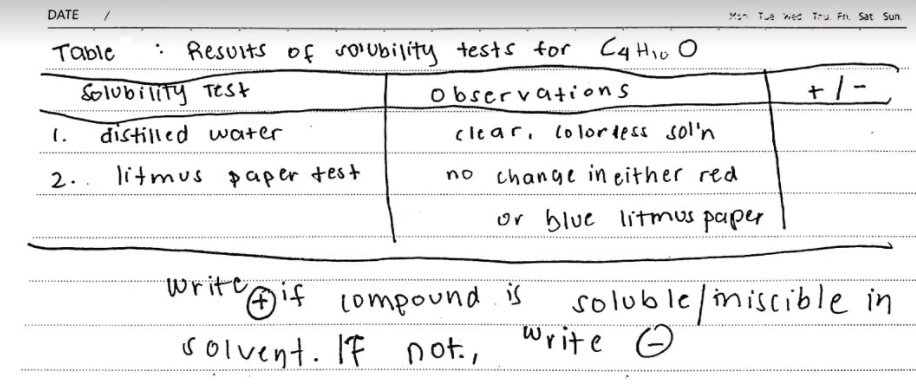 DATE /
Mon Tue Wed Thu Fri Sat Sun
Table : Results of solubility tests for C4H10O
Solubility Test Observations +/-
1. distilled water clear, colorless sol'n
2. litmus paper test no change in either red
or blue litmus paper
write ⊕ if compound is soluble/miscible in
solvent. If not, write ⊖